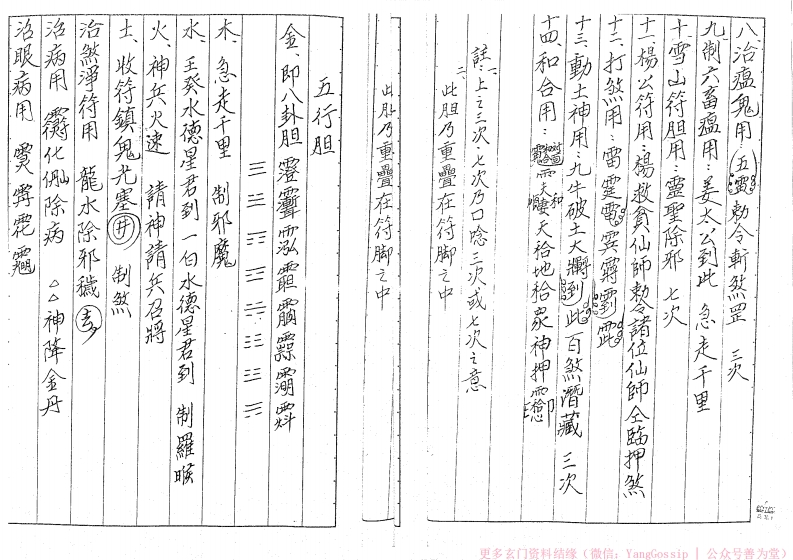 八、治瘟鬼用：五雷勅令斬煞罡 三次
九制六畜瘟用：姜太公到此 急走千里
十、雪山符胆用：靈聖除邪 七次
十一、楊公符用：楊救貧仙師勅令諸位仙師仝臨押煞
十二、打煞用：雷霆
十三、動土神用：九牛破土大將到此百煞潛藏 三次
十四、和合用： 天 和 天袷地袷眾神押
註一、上之三次、七次乃口唸三次或七次之意
二、此胆乃重疊在符脚之中
此胆乃重疊在符脚之中
五行胆
金、即八卦胆
三
木、急走千里 制邪魔
水、壬癸水德星君到 一白水德星君到 制羅睺
火、神兵火速 請神請兵召將
土、收符鎮鬼尤塞井 制煞
治煞淨符用 龍水除邪穢去
治病用 化 除病 △△神降金丹
治眼病用
更多玄门资料结缘（微信：YangGossip | 公众号善为堂）